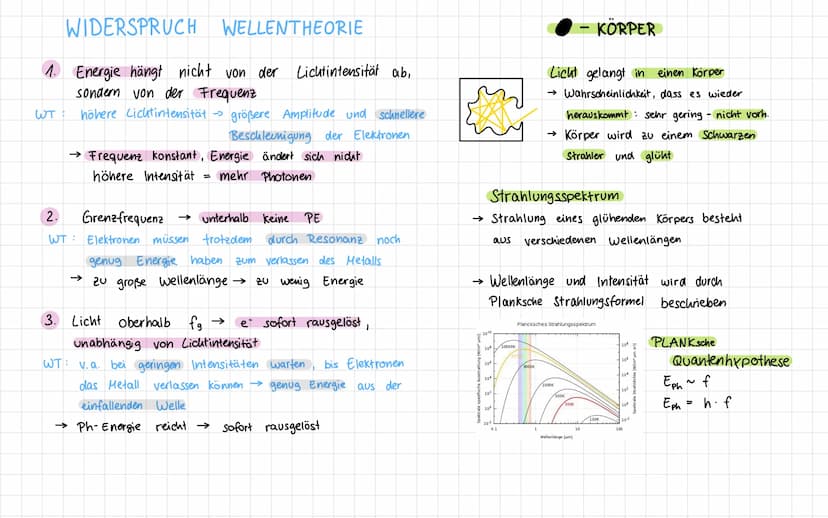 WIDERSPRUCH WELLENTHEORIE
1. Energie hängt nicht von der Lichtintensität ab,
sondern von der Frequenz
WT: höhere Lichtintensität → größere Amplitude und schnellere
Beschleunigung der Elektronen
→ Frequenz konstant, Energie ändert sich nicht
höhere Intensität = mehr Photonen
2. Grenzfrequenz → unterhalb keine PE
WT: Elektronen müssen trotzdem durch Resonanz noch
genug Energie haben zum verlassen des Metalls
→ zu große Wellenlänge → zu wenig Energie
3. Licht oberhalb fg → e⁻ sofort rausgelöst,
unabhängig von Lichtintensität
WT: v.a. bei geringen Intensitäten warten, bis Elektronen
das Metall verlassen können → genug Energie aus der
einfallenden Welle
→ Ph-Energie reicht → sofort rausgelöst
- KÖRPER
Licht gelangt in einen Körper
→ Wahrscheinlichkeit, dass es wieder
herauskommt: sehr gering - nicht vorh.
→ Körper wird zu einem Schwarzen
Strahler und glüht
Strahlungsspektrum
→ Strahlung eines glühenden Körpers besteht
aus verschiedenen Wellenlängen
→ Wellenlänge und Intensität wird durch
Planksche Strahlungsformel beschrieben
Plancksches Strahlungsspektrum
Wellenlänge [µm]
0.1 1 10 100
PLANKsche
Quantenhypothese
EPh ~ f
EPh = h · f